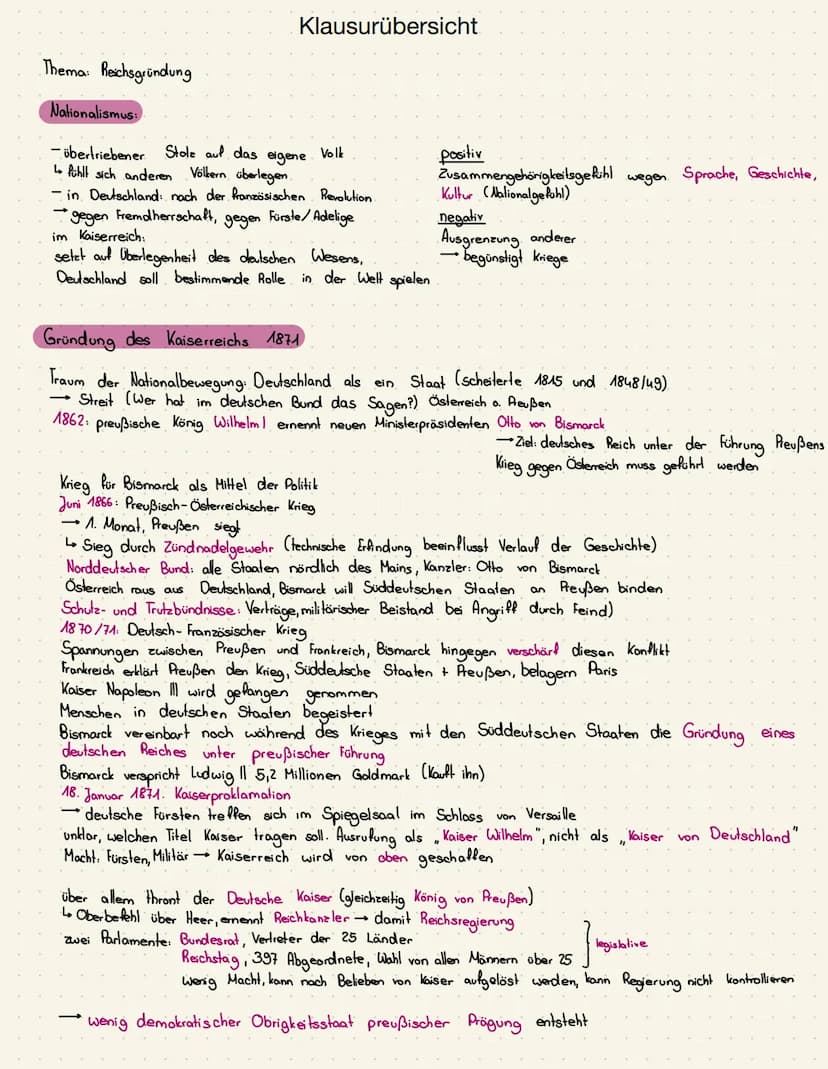 Klausurübersicht
Thema: Reichsgründung
Nationalismus:
- übertriebener Stolz auf das eigene Volk
↳ fühlt sich anderen Völkern überlegen
- in Deutschland: nach der französischen Revolution
→ gegen Fremdherrschaft, gegen Fürste/Adelige
im Kaiserreich:
setzt auf Überlegenheit des deutschen Wesens,
Deutschland soll bestimmende Rolle in der Welt spielen
positiv
Zusammengehörigkeitsgefühl wegen Sprache, Geschichte,
Kultur (Nationalgefühl)
negativ
Ausgrenzung anderer
→ begünstigt Kriege
Gründung des Kaiserreichs 1871
Traum der Nationalbewegung: Deutschland als ein Staat (scheiterte 1815 und 1848/49)
→ Streit (Wer hat im deutschen Bund das Sagen?) Österreich o. Preußen
1862: preußische König Wilhelm I ernennt neuen Ministerpräsidenten Otto von Bismarck
→ Ziel: deutsches Reich unter der Führung Preußens
Krieg gegen Österreich muss geführt werden
Krieg für Bismarck als Mittel der Politik
Juni 1866: Preußisch-Österreichischer Krieg
→ 1. Monat, Preußen siegt
↳ Sieg durch Zündnadelgewehr (technische Erfindung beeinflusst Verlauf der Geschichte)
Norddeutscher Bund: alle Staaten nördlich des Mains, Kanzler: Otto von Bismarck
Österreich raus aus Deutschland, Bismarck will Süddeutschen Staaten an Preußen binden
Schutz- und Trutzbündnisse: Verträge, militärischer Beistand bei Angriff durch Feind)
1870/71: Deutsch-Französischer Krieg
Spannungen zwischen Preußen und Frankreich, Bismarck hingegen verschärf diesen Konflikt
Frankreich erklärt Preußen den Krieg, Süddeutsche Staaten + Preußen, belagern Paris
Kaiser Napoleon III wird gefangen genommen
Menschen in deutschen Staaten begeistert
Bismarck vereinbart noch während des Krieges mit den Süddeutschen Staaten die Gründung eines
deutschen Reiches unter preußischer Führung
Bismarck verspricht Ludwig II 5,2 Millionen Goldmark (kauft ihn)
18. Januar 1871. Kaiserproklamation
→ deutsche Fürsten treffen sich im Spiegelsaal im Schloss von Versaille
unklar, welchen Titel Kaiser tragen soll. Ausrufung als „Kaiser Wilhelm", nicht als „Kaiser von Deutschland"
Macht, Fürsten, Militär → Kaiserreich wird von oben geschaffen
über allem thront der Deutsche Kaiser (gleichzeitig König von Preußen)
↳ Oberbefehl über Heer, ernennt Reichkanzler → damit Reichsregierung
zwei Parlamente: Bundesrat, Vertreter der 25 Länder
Reichstag, 397 Abgeordnete, Wahl von allen Männern über 25
legislative
Wenig Macht, kann nach Belieben von Kaiser aufgelöst werden, kann Regierung nicht kontrollieren
→ wenig demokratischer Obrigkeitsstaat preußischer Prägung entsteht